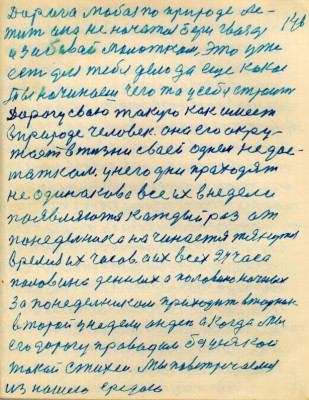 146
Дорога любая по природе ле-
жит она не начата бери гвозд
и забивай молотком. Это уже
есть для тебя дело да еще какое
Ты начинаем чего то у себя строит
Дорогу свою такую как имеет
в природе человек. она его окру-
жает в жизни своей одним недос-
татком, у него дни приходят
не одинаково все их в неделе
появляются каждый раз от
понедельника начинается тянутся
время их часов а их всех 24 часа
половина денных а половина ночных
За понедельником приходит вторник
второй у недели он ден а когда мы
его дорогу проводим
такой стихеи мы повстречаем
из нашего средого